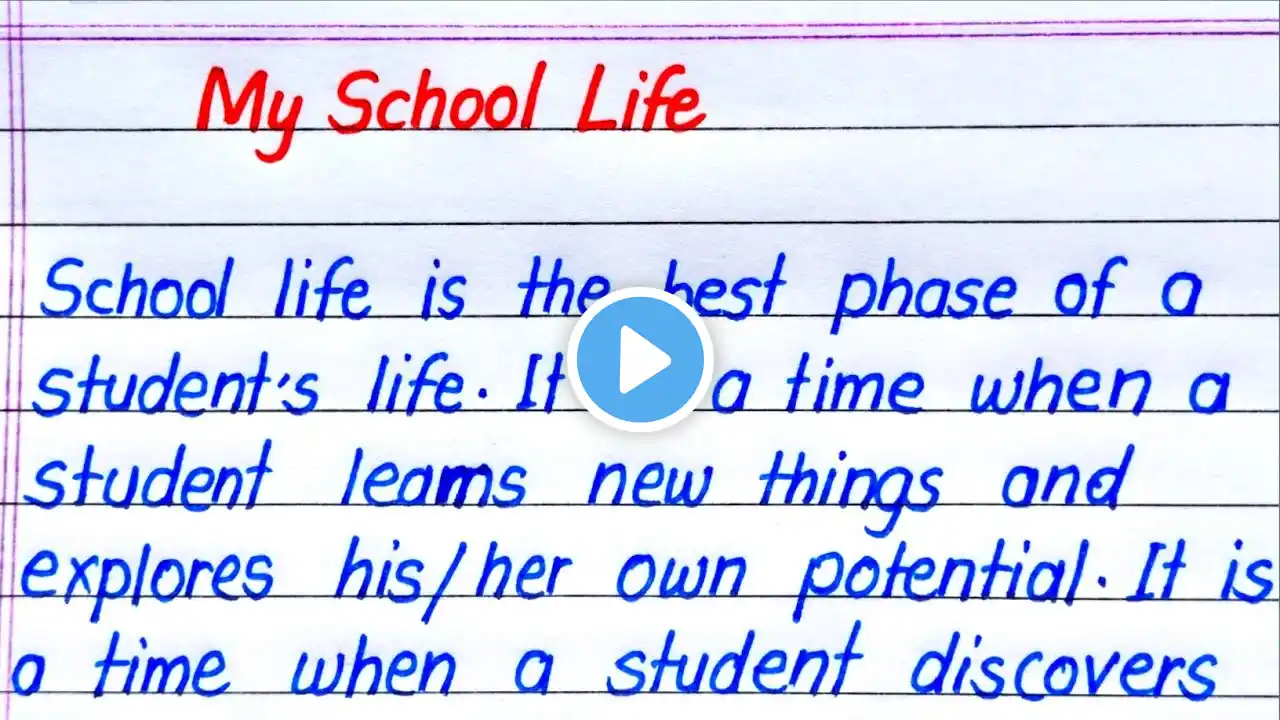 My School Life
School life is the best phase of a
student's life. It a time when a
student learns new things and
explores his/her own potential. It is
a time when a student discovers